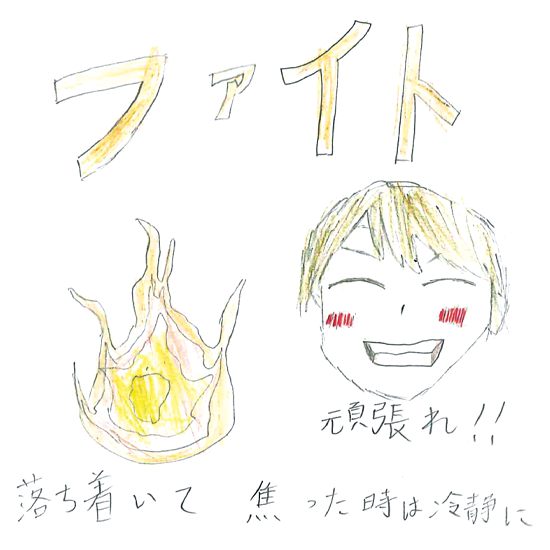 ファイト
頑張れ!!
落ち着いて 焦った時は冷静に